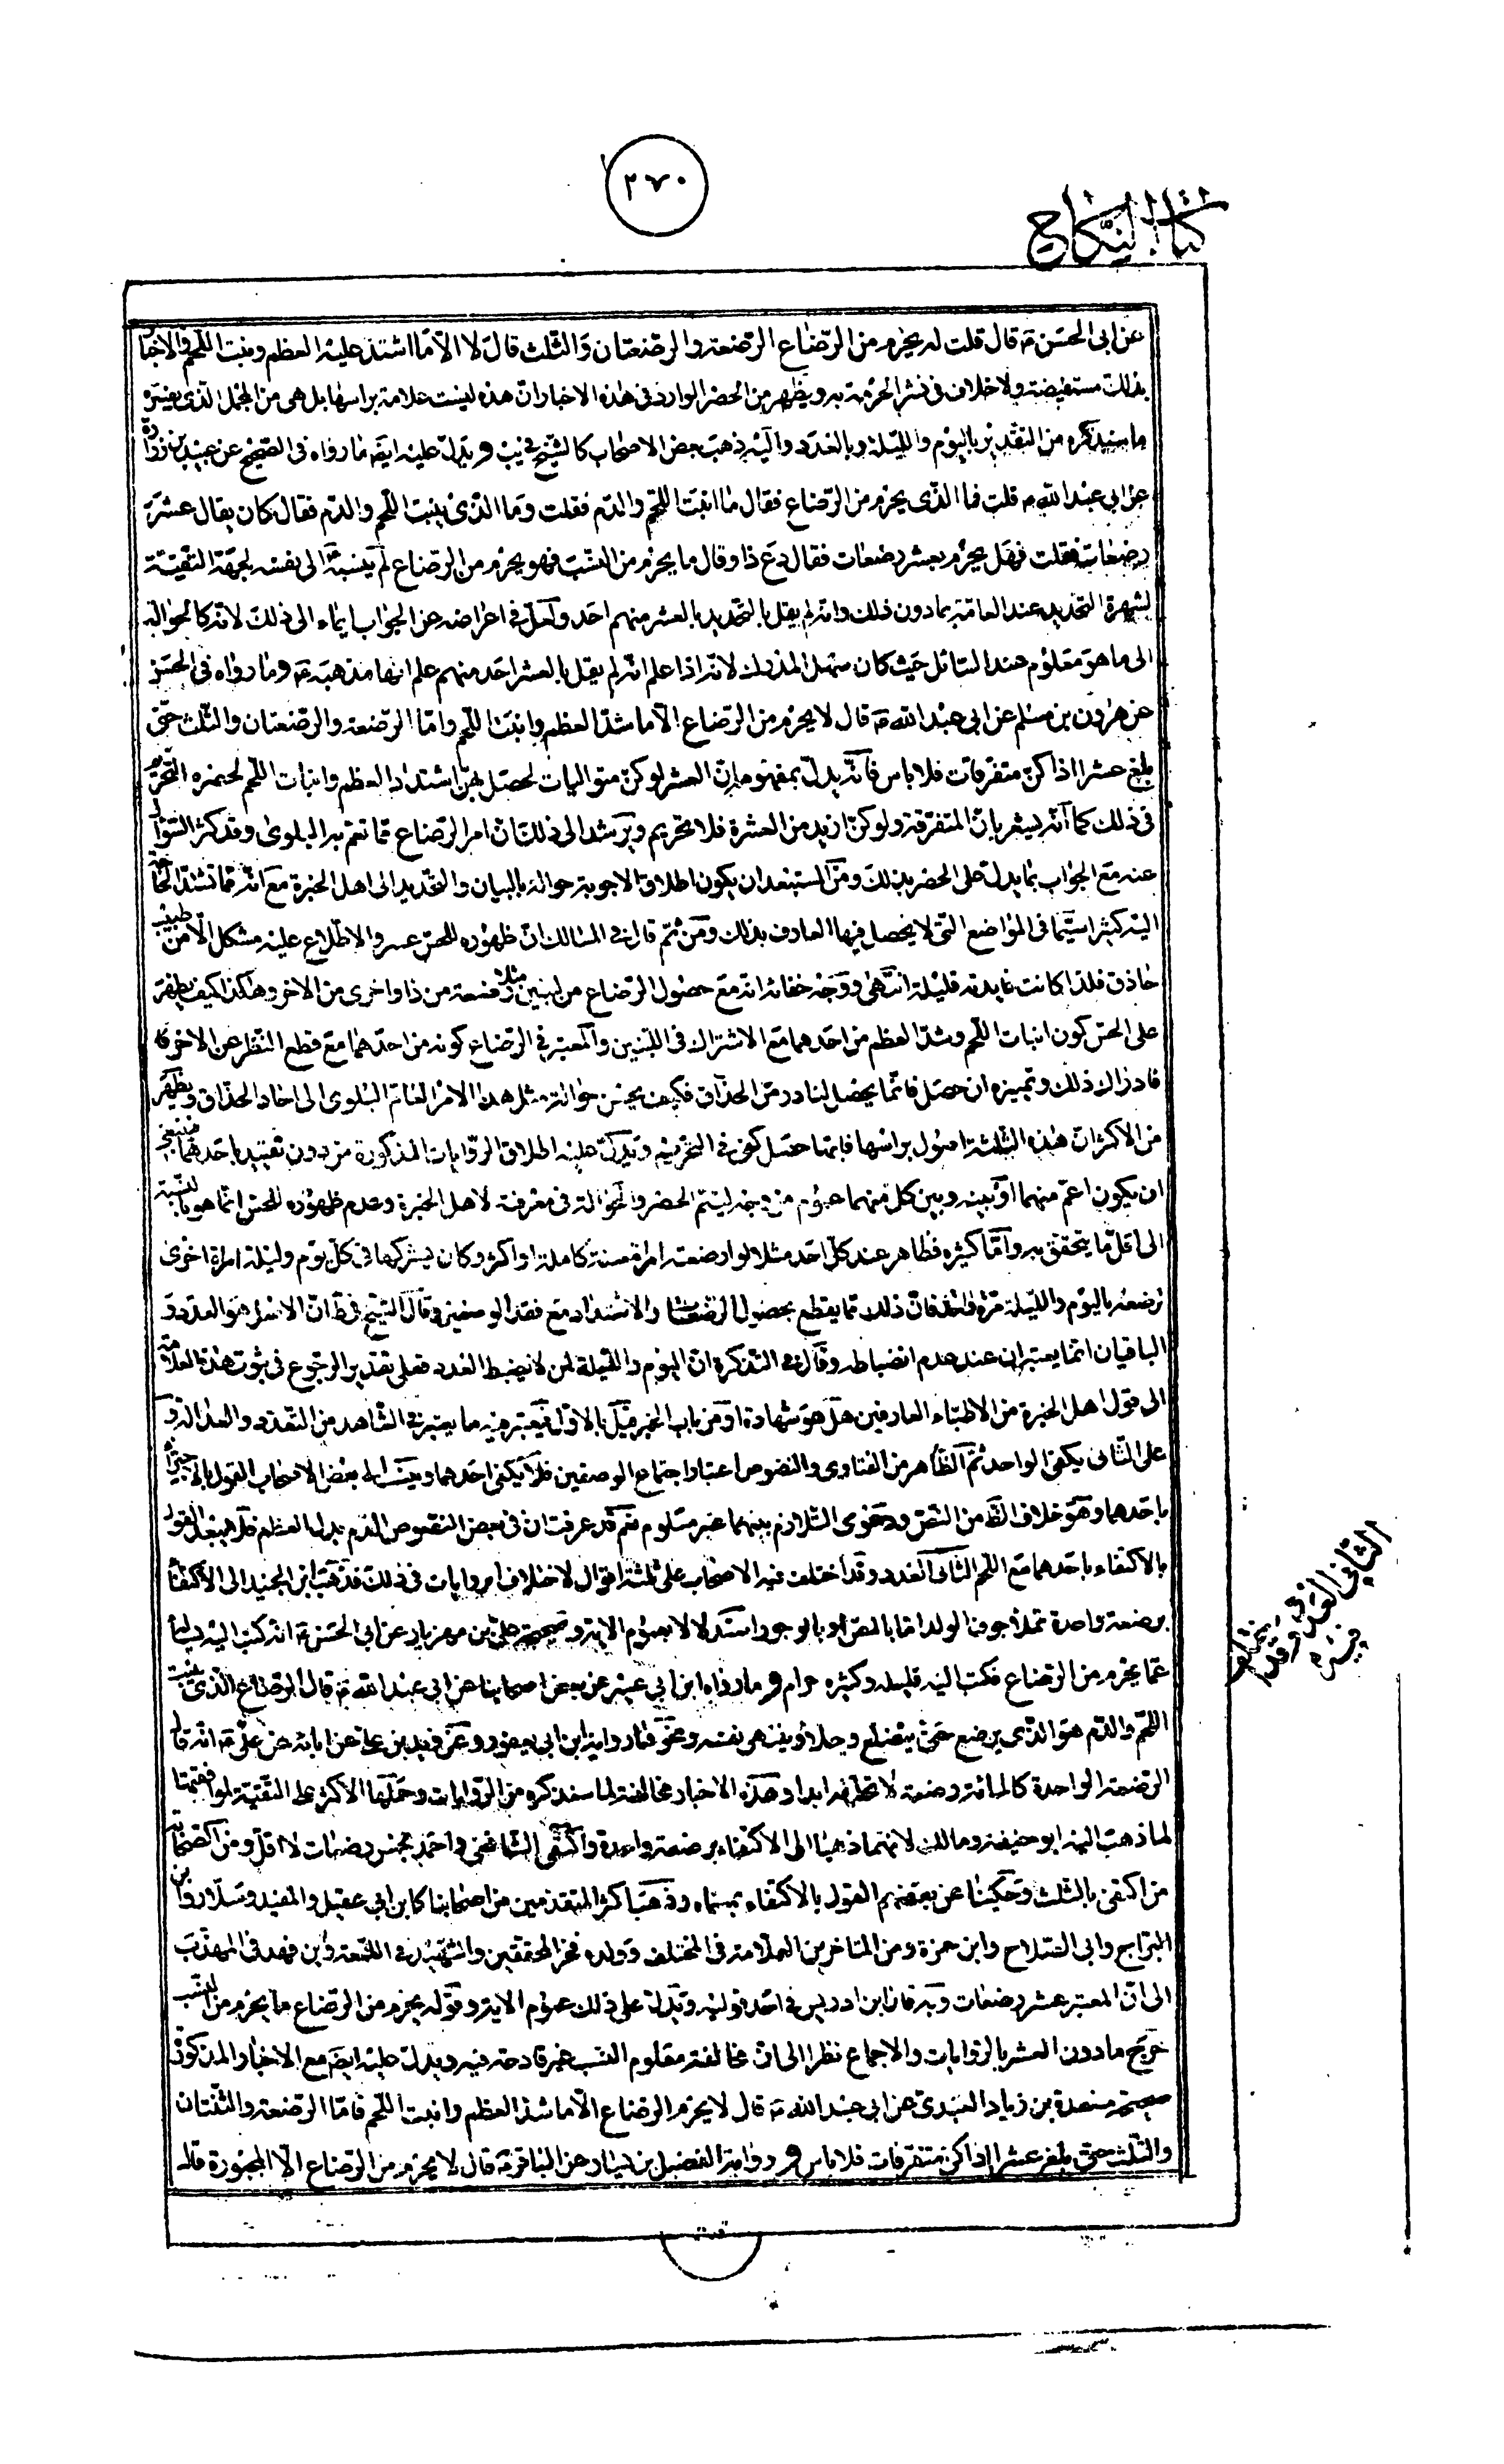 ٢٧٠
كتاب النكاح
عن ابى الحسن ع قال قلت له يحرم من الرضاع الرضعة والرضعتان والثلث قال لا الا ما اشتد عليه العظم ونبت اللحم والاخبار
بذلك مستفيضة ولا خلاف فى نشر الحرمة به ويظهر من الحصر الوارد فى هذه الاخبار ان هذه ليست علامة براسها بل هى من المجمل الذى يفسره
ما سنذكره من التقدير باليوم والليلة وبالعدد واليه ذهب بعض الاصحاب كالشيخ فى يب ويدل عليه ايضا ما رواه فى الصحيح عن عبيد بن زرارة
عن ابى عبد الله ع قلت فما الذى يحرم من الرضاع فقال ما انبت اللحم والدم فقلت وما الذى ينبت اللحم والدم فقال كان يقال عشر
رضعات فقلت فهل يحرم بعشر رضعات فقال دع ذا وقال ما يحرم من النسب فهو يحرم من الرضاع لم ينسبه الى نفسه لجهة التقية
لشهرة التحديد عند العامة بما دون ذلك وانه لم يقل بالتحديد بالعشر منهم احد ولعل فى اعراضه عن الجواب ايماء الى ذلك لانه كالحوالة
الى ما هو معلوم عند السائل حيث كان سهل المدرك لانه اذا علم انه لم يقل بالعشر احد منهم علم انها مذهبه ع وما رواه فى الحسن
عن هرون بن مسلم عن ابى عبد الله ع قال لا يحرم من الرضاع الا ما شد العظم وانبت اللحم واما الرضعة والرضعتان والثلث حتى
بلغ عشرا اذا كن متفرقات فلا باس فانه يدل بمفهومه ان العشر لو كن متواليات لحصل بهن اشتداد العظم وانبات اللحم لحصره التحريم
فى ذلك كما انه يشعر بان المتفرقة ولو كن ازيد من العشرة فلا تحريم ويرشد الى ذلك ان امر الرضاع مما تعم به البلوى وقد كثر السؤال
عنه مع الجواب بما يدل على الحصر بذلك ومن المستبعد ان يكون اطلاق الاجوبة حوالة بالبيان والتحديد الى اهل الخبرة مع انه مما تشتد الحاجة
اليه كثيرا سيما فى المواضع التى لا يحصل فيها العارف بذلك ومن ثم قال فى المسالك ان ظهوره للحس عسر والاطلاع عليه مشكل الا من طبيب
حاذق فلذا كانت فايدته قليلة انتهى ووجه خفائه انه مع حصول الرضاع من لبنين مثلا رضعة من ذا واخرى من الاخر وهكذا كيف يظهر
على الحس كون انبات اللحم وشد العظم من احدهما مع الاشتراك فى اللبنين والمعتبر فى الرضاع كونه من احدهما مع قطع النظر عن الاخر
فادراك ذلك وتميزه ان حصل فانما يحصل لنادر من الحذاق فكيف يحسن حوالة مثل هذا الامر العام البلوى الى احاد الحذاق ويظهر
من الاكثر ان هذه الثلثة اصول براسها فايتها حصل كفى فى التحريم ويدل عليه اطلاق الروايات المذكورة من دون تقييد باحدهما فينبغى
ان يكون اعم منهما او بينه وبين كل منهما عموم من وجه ليتم الحصر والحوالة فى معرفته لاهل الخبرة وعدم ظهوره للحس انما هو بالنسبة
الى اقل ما يتحقق به واما كثيره فظاهر عند كل احد مثلا لو ارضعته امراة سنة كاملة او اكثر وكان يشركها فى كل يوم وليلة امراة اخرى
ترضعه باليوم والليلة مرة فان ذلك مما يقطع بحصول الانبات والاشتداد مع فقد الوصفين وقال الشيخ فى ط ان الاصل هو العدد و
الباقيان انما يعتبران عند عدم انضباطه وقال فى التذكرة ان اليوم والليلة لمن لا يضبط العدد فعلى تقدير الرجوع فى ثبوت هذه العلامة
الى قول اهل الخبرة من الاطباء العارفين هل هو شهادة او من باب الخبر قيل بالاول فيعتبر فيه ما يعتبر فى الشاهد من التعدد والعدالة و
على الثانى يكفى الواحد ثم الظاهر من الفتاوى والنصوص اعتبار اجتماع الوصفين فلا يكفى احدهما وينسب الى بعض الاصحاب القول بالاجتزاء
باحدهما وهو خلاف الظ من النص ودعوى التلازم بينهما غير مسلوم نعم قد عرفت ان فى بعض النصوص الدم بدل العظم فلا يبعد القول
بالاكتفاء باحدهما مع اللحم الثانى العدد وقد اختلف فيه الاصحاب على ثلثة اقوال لاختلاف الروايات فى ذلك فذهب ابن الجنيد الى الاكتفاء
برضعة واحدة تملأ جوف الولد اما بالمص او بالوجور استدلالا بعموم الاية وصحيحة على بن مهزيار عن ابى الحسن ع انه كتب اليه يساله
عما يحرم من الرضاع فكتب اليه قليله وكثيره حرام وما رواه ابن ابى عمير عن بعض اصحابنا عن ابى عبد الله ع قال الرضاع الذى ينبت
اللحم والدم هو الذى يرضع حتى يتضلع ويتملأ وينتهى نفسه ونحو هما رواية ابن ابى يعفور وعن زيد بن على عن ابائه عن على ع انه قال
الرضعة الواحدة كالمائة رضعة لا تحل له ابدا وهذه الاخبار مخالفة لما سنذكره من الروايات وحملها الاكثر على التقية لموافقتها
لما ذهب اليه ابو حنيفة ومالك لانهما ذهبا الى الاكتفاء برضعة واحدة واكتفى الشافعى واحمد بخمس رضعات لا اقل ومن اصحابه
من اكتفى بالثلث وحكينا عن بعضهم القول بالاكتفاء بمسماه وذهب اكثر المتقدمين من اصحابنا كابن ابى عقيل والمفيد وسلار وابن
البراج وابى الصلاح وابن حمزة ومن المتاخرين العلامة فى المختلف وولده فخر المحققين والشهيد فى اللمعة وابن فهد فى المهذب
الى ان المعتبر عشر رضعات وبه قال ابن ادريس فى احد قوليه ويدل على ذلك عموم الاية وقوله يحرم من الرضاع ما يحرم من النسب
خرج ما دون العشر بالروايات والاجماع نظرا الى ان مخالفة معلوم النسب غير قادحة فيه ويدل عليه ايضا مع الاخبار المذكورة
صحيحة مسعدة بن زياد العبدى عن ابى عبد الله ع قال لا يحرم الرضاع الا ما شد العظم وانبت اللحم فاما الرضعة والثنتان
والثلث حتى بلغ عشرا اذا كن متفرقات فلا باس ورواية الفضيل بن يسار عن الباقر ع قال لا يحرم من الرضاع الا المجبورة قلت
الثانى العدد وقد
قلت